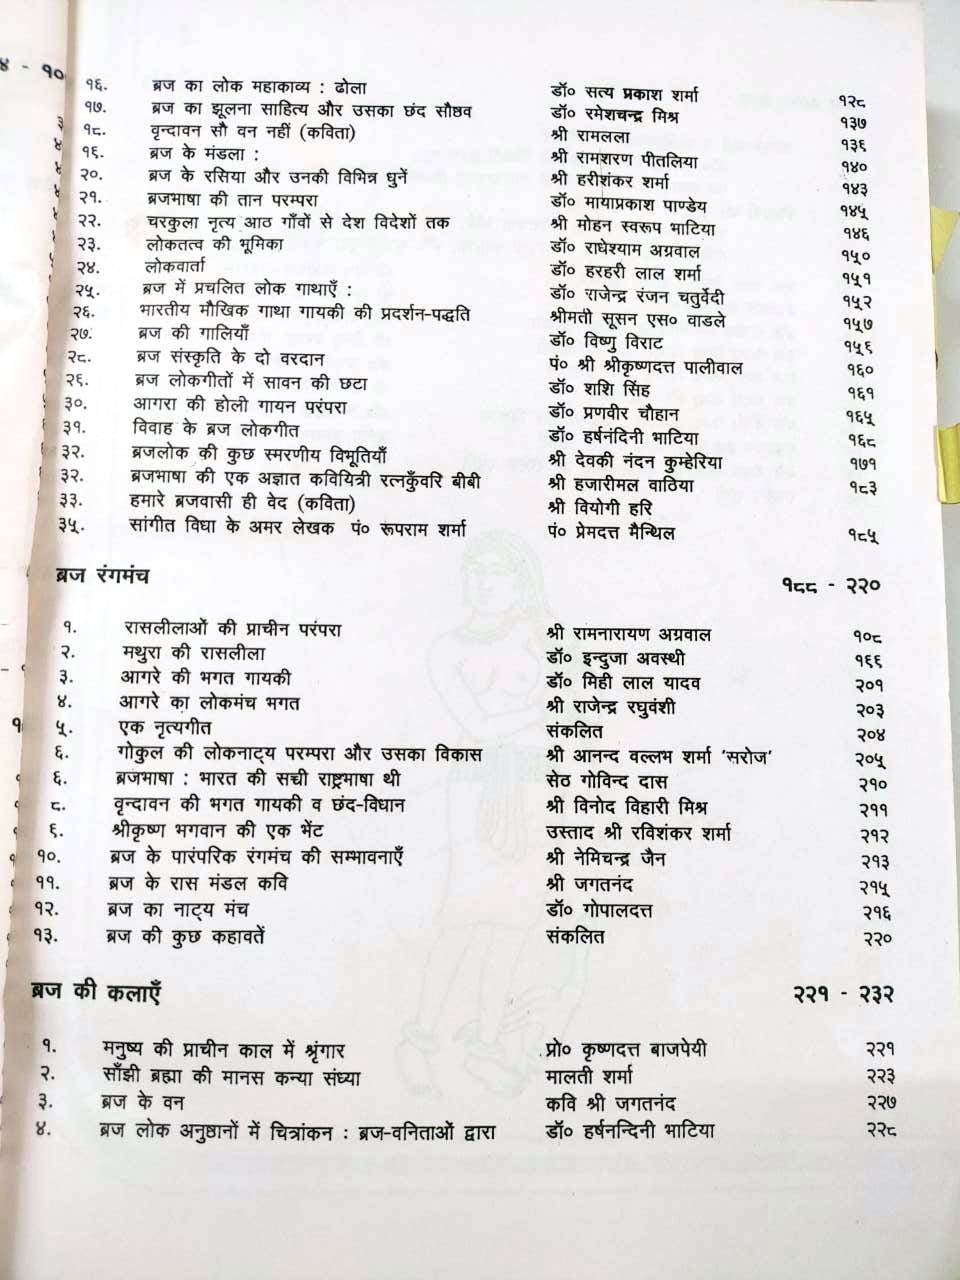 १६. ब्रज का लोक महाकाव्य : ढोला डॉ० सत्य प्रकाश शर्मा १२८
१७. ब्रज का झूलना साहित्य और उसका छंद सौष्ठव डॉ० रमेशचन्द्र मिश्र १३७
१८. वृन्दावन सौ वन नहीं (कविता) श्री रामलला १३६
१६. ब्रज के मंडला : श्री रामशरण पीतलिया १४०
२०. ब्रज के रसिया और उनकी विभिन्न धुनें श्री हरीशंकर शर्मा १४३
२१. ब्रजभाषा की तान परम्परा डॉ० मायाप्रकाश पाण्डेय १४५
२२. चरकुला नृत्य आठ गाँवों से देश विदेशों तक श्री मोहन स्वरूप भाटिया १४६
२३. लोकतत्व की भूमिका डॉ० राधेश्याम अग्रवाल १५०
२४. लोकवार्ता डॉ० हरहरी लाल शर्मा १५१
२५. ब्रज में प्रचलित लोक गाथाएँ : डॉ० राजेन्द्र रंजन चतुर्वेदी १५२
२६. भारतीय मौखिक गाथा गायकी की प्रदर्शन-पद्धति श्रीमती सूसन एस० वाडले १५७
२७. ब्रज की गालियाँ डॉ० विष्णु विराट १५६
२८. ब्रज संस्कृति के दो वरदान पं० श्री श्रीकृष्णदत्त पालीवाल १६०
२६. ब्रज लोकगीतों में सावन की छटा डॉ० शशि सिंह १६१
३०. आगरा की होली गायन परंपरा डॉ० प्रणवीर चौहान १६५
३१. विवाह के ब्रज लोकगीत डॉ० हर्षनंदिनी भाटिया १६८
३२. ब्रजलोक की कुछ स्मरणीय विभूतियाँ श्री देवकी नंदन कुम्हेरिया १७१
३२. ब्रजभाषा की एक अज्ञात कवियित्री रत्नकुँवरि बीबी श्री हजारीमल वाठिया १८३
३३. हमारे ब्रजवासी ही वेद (कविता) श्री वियोगी हरि
३५. सांगीत विधा के अमर लेखक पं० रूपराम शर्मा पं० प्रेमदत्त मैन्थिल १८५
ब्रज रंगमंच १८८ - २२०
१. रासलीलाओं की प्राचीन परंपरा श्री रामनारायण अग्रवाल १०८
२. मथुरा की रासलीला डॉ० इन्दुजा अवस्थी १६६
३. आगरे की भगत गायकी डॉ० मिही लाल यादव २०१
४. आगरे का लोकमंच भगत श्री राजेन्द्र रघुवंशी २०३
५. एक नृत्यगीत संकलित २०४
६. गोकुल की लोकनाट्य परम्परा और उसका विकास श्री आनन्द वल्लभ शर्मा 'सरोज' २०५
६. ब्रजभाषा : भारत की सच्ची राष्ट्रभाषा थी सेठ गोविन्द दास २१०
८. वृन्दावन की भगत गायकी व छंद-विधान श्री विनोद विहारी मिश्र २११
६. श्रीकृष्ण भगवान की एक भेंट उस्ताद श्री रविशंकर शर्मा २१२
१०. ब्रज के पारंपरिक रंगमंच की सम्भावनाएँ श्री नेमिचन्द्र जैन २१३
११. ब्रज के रास मंडल कवि श्री जगतनंद २१५
१२. ब्रज का नाट्य मंच डॉ० गोपालदत्त २१६
१३. ब्रज की कुछ कहावतें संकलित २२०
ब्रज की कलाएँ २२१ - २३२
१. मनुष्य की प्राचीन काल में श्रृंगार प्रो० कृष्णदत्त बाजपेयी २२१
२. साँझी ब्रह्मा की मानस कन्या संध्या मालती शर्मा २२३
३. ब्रज के वन कवि श्री जगतनंद २२७
४. ब्रज लोक अनुष्ठानों में चित्रांकन : ब्रज-वनिताओं द्वारा डॉ० हर्षनन्दिनी भाटिया २२८